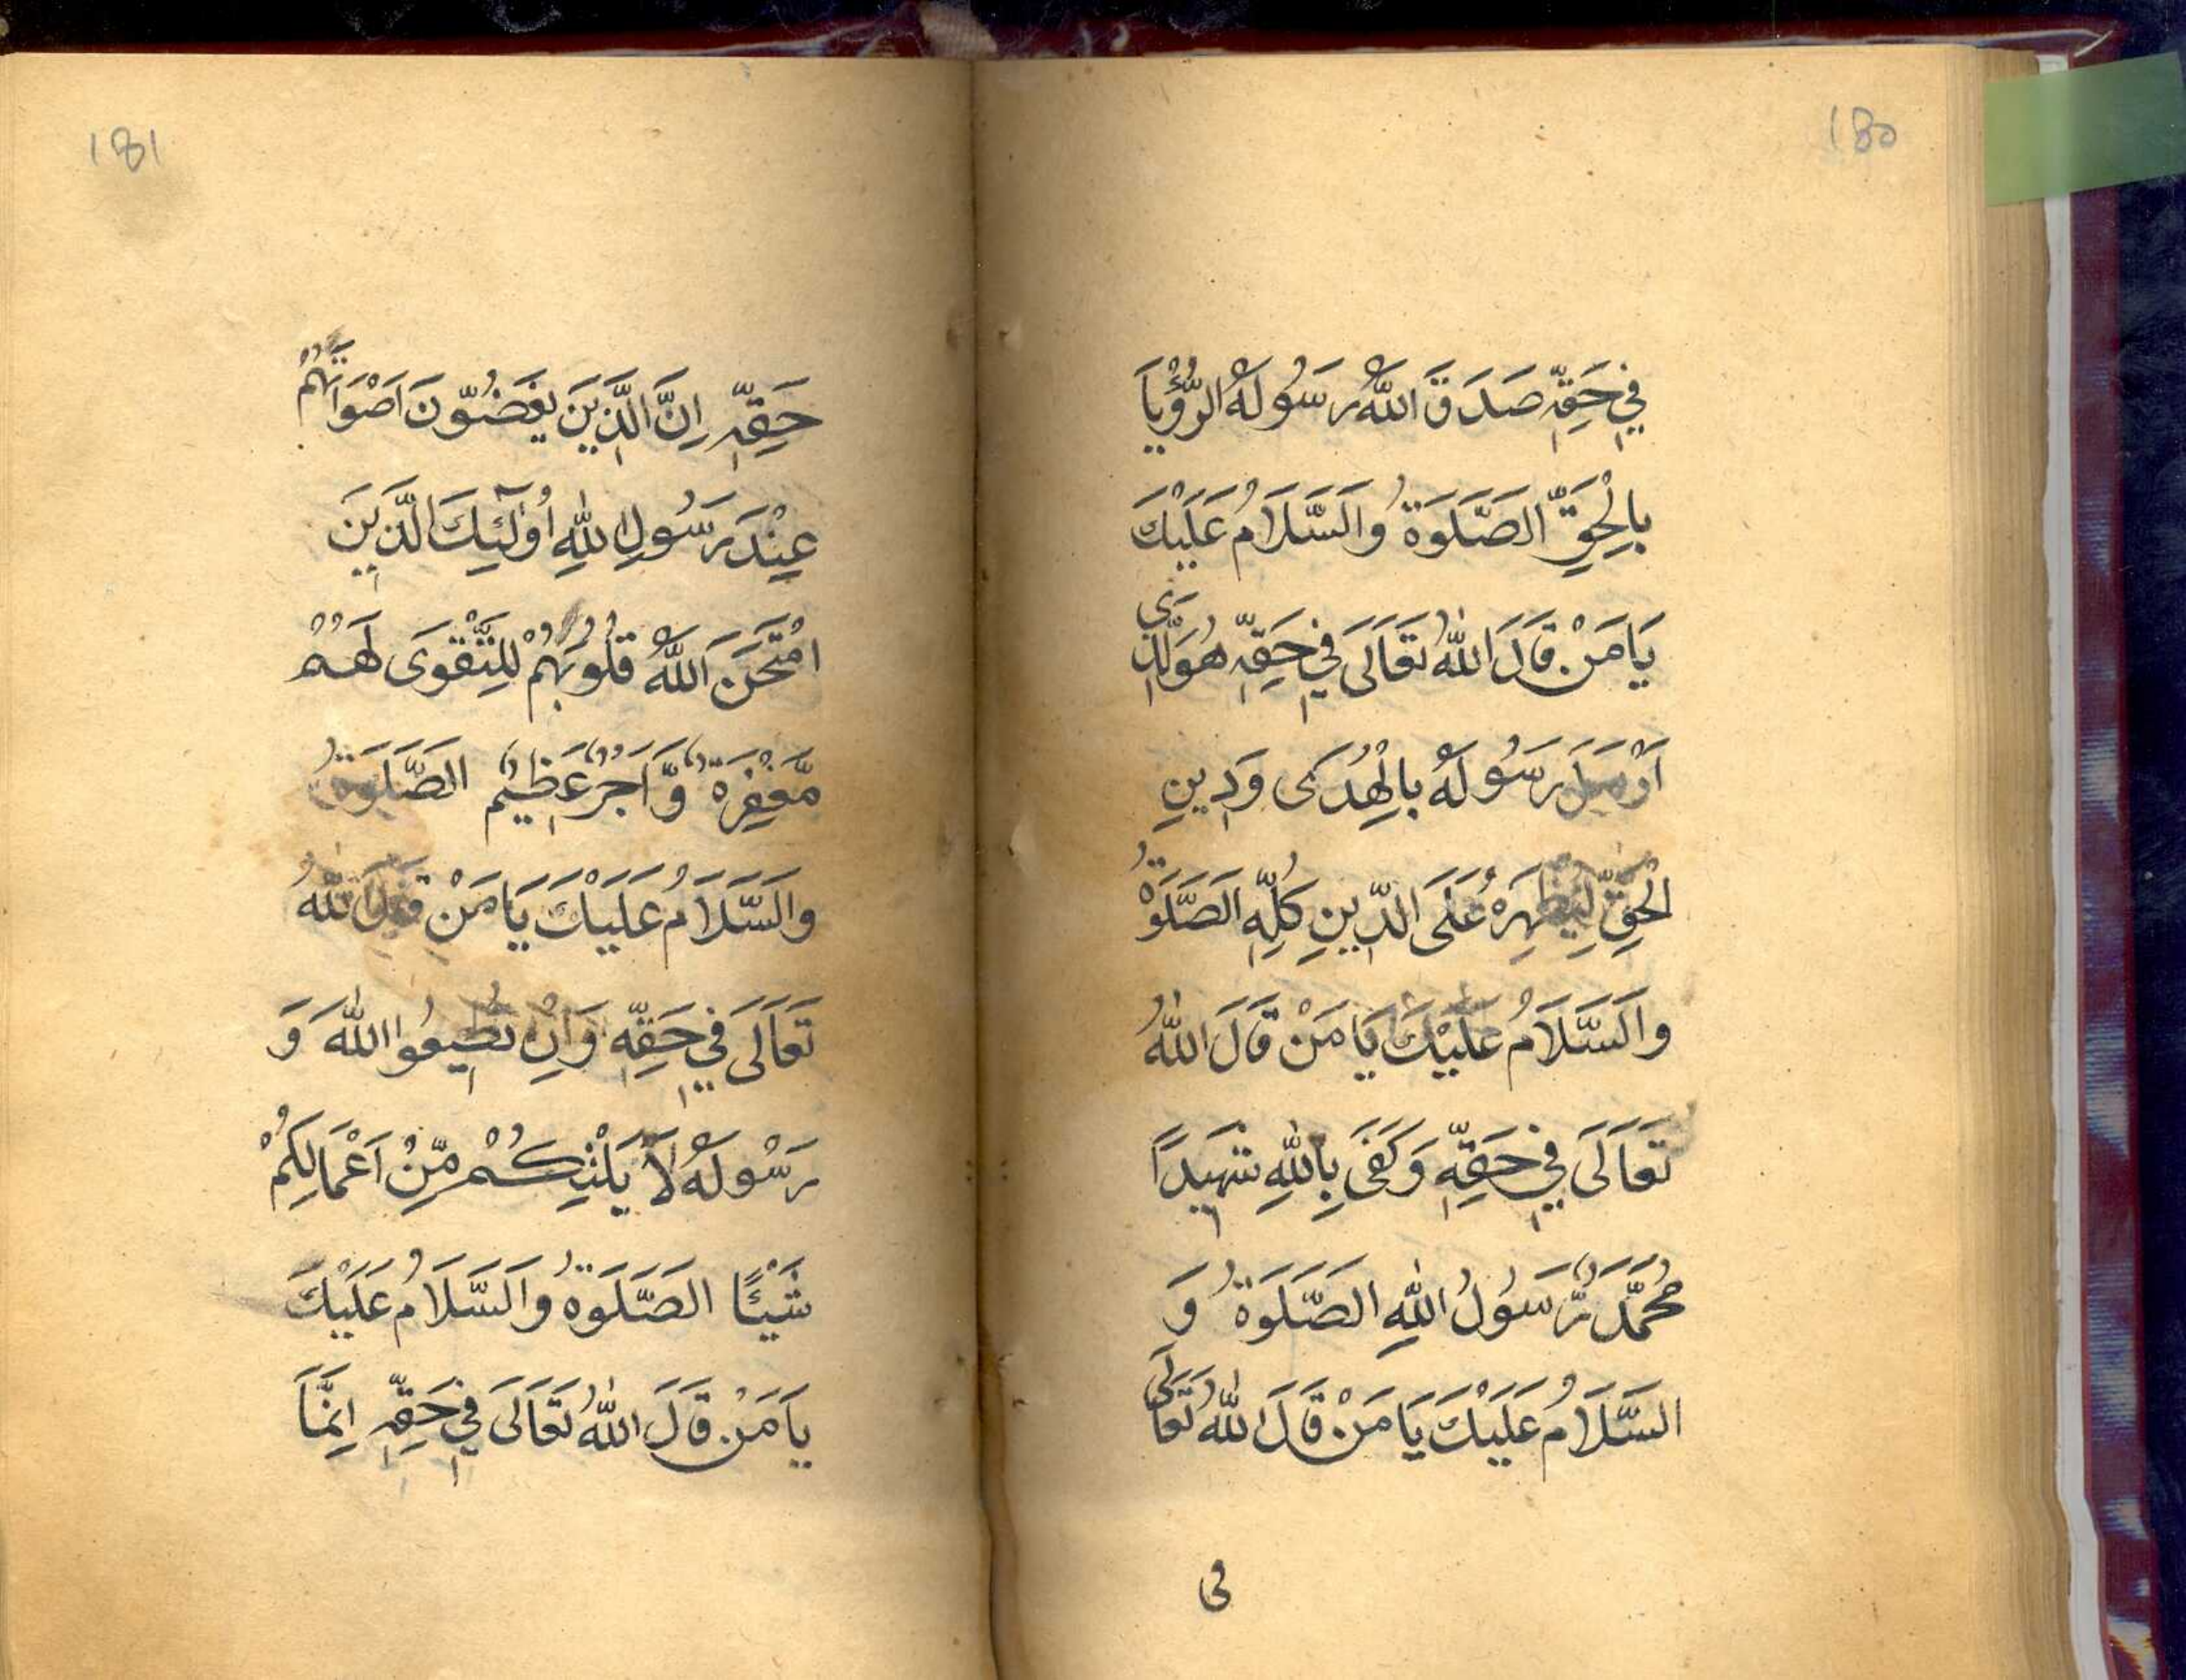 180
فِي حَقِّهٖ صَدَقَ اللّٰهُ رَسُولَهُ الرُّؤْيَا
بِالْحَقِّ الصَّلَوةُ وَالسَّلَامُ عَلَيْكَ
يَا مَنْ قَالَ اللّٰهُ تَعَالَى فِي حَقِّهٖ هُوَ الَّذِي
اَرْسَلَ رَسُولَهُ بِالْهُدَى وَدِينِ
الْحَقِّ لِيُظْهِرَهُ عَلَى الدِّينِ كُلِّهٖ الصَّلَوةُ
وَالسَّلَامُ عَلَيْكَ يَا مَنْ قَالَ اللّٰهُ
تَعَالَى فِي حَقِّهٖ وَكَفَى بِاللّٰهِ شَهِيدًا
مُحَمَّدٌ رَّسُولُ اللّٰهِ الصَّلَوةُ وَ
السَّلَامُ عَلَيْكَ يَا مَنْ قَالَ اللّٰهُ تَعَالَى
فى
181
حَقِّهٖ اِنَّ الَّذِينَ يَغُضُّونَ اَصْوَاتَهُمْ
عِنْدَ رَسُولِ اللّٰهِ اُولٰٓئِكَ الَّذِينَ
امْتَحَنَ اللّٰهُ قُلُوبَهُمْ لِلتَّقْوَى لَهُمْ
مَّغْفِرَةٌ وَّاَجْرٌ عَظِيْمٌ الصَّلَوةُ
وَالسَّلَامُ عَلَيْكَ يَا مَنْ قَالَ اللّٰهُ
تَعَالَى فِي حَقِّهٖ وَاِنْ تُطِيعُوا اللّٰهَ وَ
رَسُولَهُ لَا يَلِتْكُمْ مِّنْ اَعْمَالِكُمْ
شَيْئًا الصَّلَوةُ وَالسَّلَامُ عَلَيْكَ
يَا مَنْ قَالَ اللّٰهُ تَعَالَى فِي حَقِّهٖ اِنَّمَا